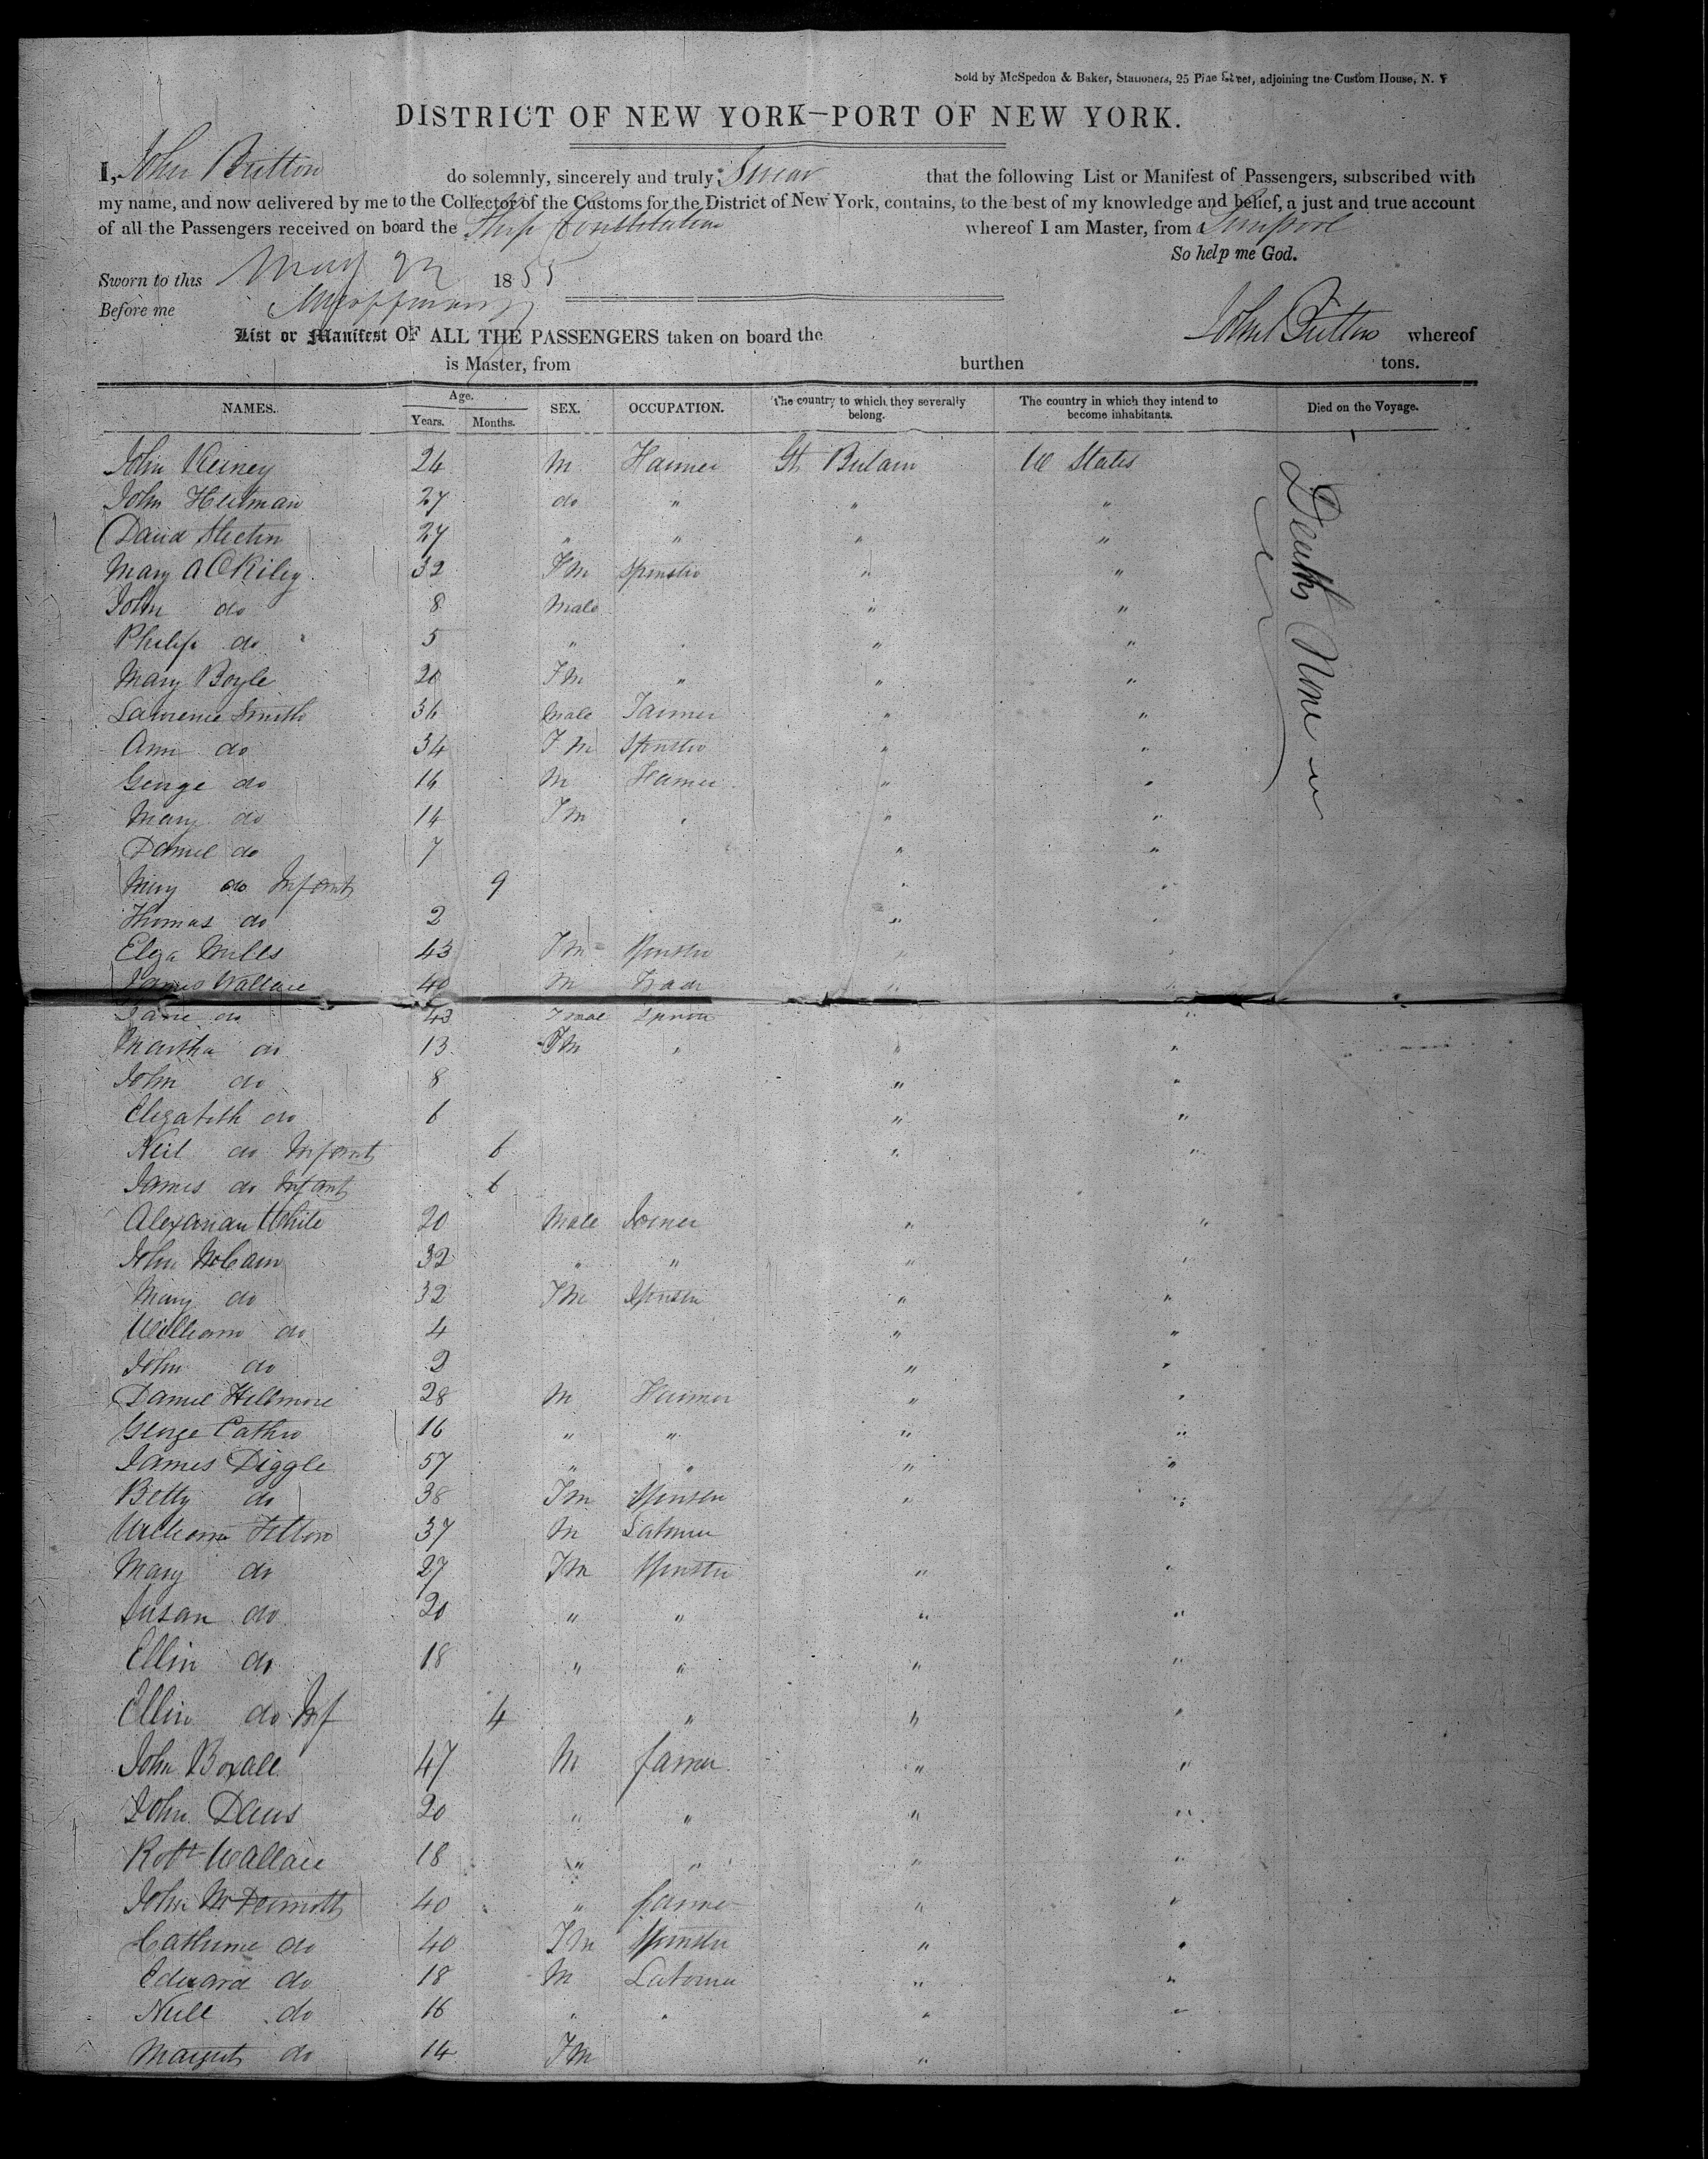 Sold by McSpedon & Baker, Stationers, 25 Pine Street, adjoining the Custom House, N. Y
DISTRICT OF NEW YORK—PORT OF NEW YORK.
I, John Britton do solemnly, sincerely and truly Swear that the following List or Manifest of Passengers, subscribed with
my name, and now delivered by me to the Collector of the Customs for the District of New York, contains, to the best of my knowledge and belief, a just and true account
of all the Passengers received on board the Ship Constitution whereof I am Master, from Liverpool
So help me God.
Sworn to this May 22 1855
Before me
List or Manifest OF ALL THE PASSENGERS taken on board the John Britton whereof
is Master, from burthen tons.
NAMES. Age. Years. Months. SEX. OCCUPATION. The country to which they severally belong. The country in which they intend to become inhabitants. Died on the Voyage.
John 24 M Farmer Gt Britain U States
John 27 do " " "
David 27 " " " "
Mary A O Riley 32 Fm Spinster " "
John do 8 Male " "
Philip do 5 " " "
Mary Boyle 20 Fm " " "
Lawrence Smith 36 Male Farmer " "
Ann do 34 Fm Spinster " "
George do 16 M Farmer " "
Mary do 14 Fm " " "
Daniel do 7 " "
Mary do Infant 9 " "
Thomas do 2 " "
Eliza Mills 43 Fm Spinster " "
James Wallace 40 M " "
Jane do 43 "
Martha do 13 Fm " " "
John do 8 " "
Elizabeth do 6 " "
Neil do Infant 6 " "
James do Infant 6
White 20 Male Joiner " "
John McCann 32 " " " "
Mary do 32 Fm Spinster " "
William do 4 " "
John do 2 " "
Daniel 28 M Farmer " "
George 16 " " " "
James Diggle 57 " " " "
Betty do 38 Fm Spinster " "
William Fitton 37 M Laborer
Mary do 27 Fm Spinster " "
Susan do 20 " " " "
Ellin do 18 " " " "
Ellin do Inf 4 " " "
John Boxall 47 M farmer " "
John 20 " " " "
Robt Wallace 18 " " " "
John McDermott 40 " farmer " "
Catherine do 40 Fm Spinster " "
Edward do 18 M Laborer " "
do 16 " " " "
Margret do 14 Fm "
Deaths None